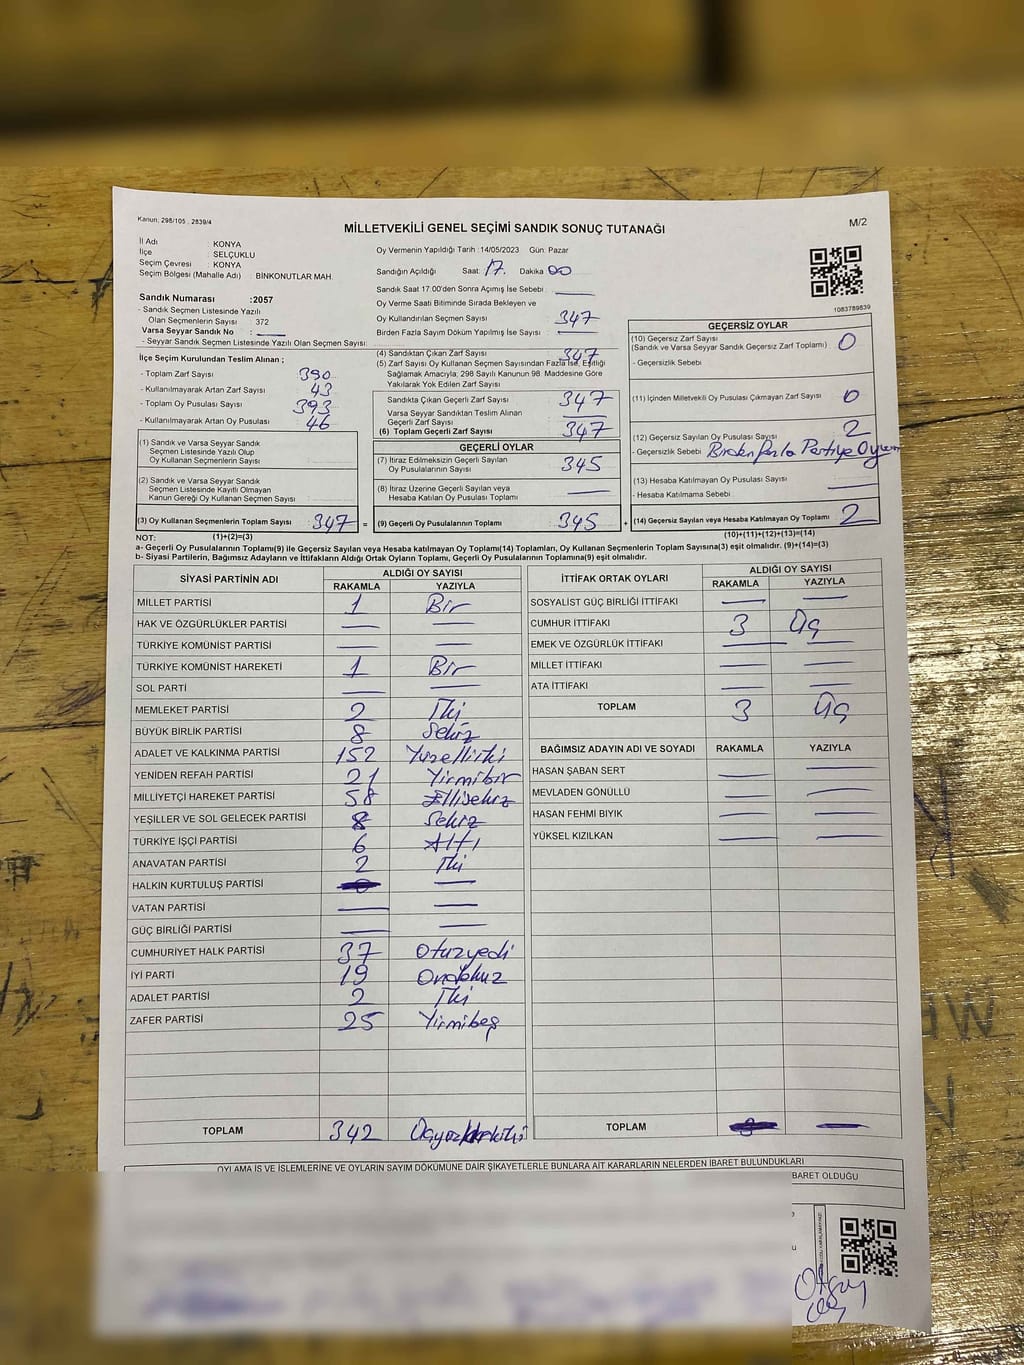 Kanun: 298/105 , 2839/4
MİLLETVEKİLİ GENEL SEÇİMİ SANDIK SONUÇ TUTANAĞI
M/2
İl Adı : KONYA
İlçe : SELÇUKLU
Seçim Çevresi : KONYA
Seçim Bölgesi (Mahalle Adı) : BİNKONUTLAR MAH.
Sandık Numarası :2057
- Sandık Seçmen Listesinde Yazılı
Olan Seçmenlerin Sayısı : 372
Varsa Seyyar Sandık No :
- Seyyar Sandık Seçmen Listesinde Yazılı Olan Seçmen Sayısı:
Oy Vermenin Yapıldığı Tarih :14/05/2023 Gün: Pazar
Sandığın Açıldığı Saat: 17. Dakika 00
Sandık Saat 17:00'den Sonra Açımış İse Sebebi :
Oy Verme Saati Bitiminde Sırada Bekleyen ve
Oy Kullandırılan Seçmen Sayısı : 347
Birden Fazla Sayım Döküm Yapılmış İse Sayısı :
1083789839
İlçe Seçim Kurulundan Teslim Alınan ;
- Toplam Zarf Sayısı : 390
- Kullanılmayarak Artan Zarf Sayısı : 43
- Toplam Oy Pusulası Sayısı : 393
- Kullanılmayarak Artan Oy Pusulası : 46
(1) Sandık ve Varsa Seyyar Sandık
Seçmen Listesinde Yazılı Olup
Oy Kullanan Seçmenlerin Sayısı :
(2) Sandık ve Varsa Seyyar Sandık
Seçmen Listesinde Kayıtlı Olmayan
Kanun Gereği Oy Kullanan Seçmen Sayısı :
(3) Oy Kullanan Seçmenlerin Toplam Sayısı : 347 =
(4) Sandıktan Çıkan Zarf Sayısı : 347
(5) Zarf Sayısı Oy Kullanan Seçmen Sayısından Fazla İse, Eşitliği
Sağlamak Amacıyla; 298 Sayılı Kanunun 98. Maddesine Göre
Yakılarak Yok Edilen Zarf Sayısı :
Sandıkta Çıkan Geçerli Zarf Sayısı : 347
Varsa Seyyar Sandıktan Teslim Alınan
Geçerli Zarf Sayısı :
(6) Toplam Geçerli Zarf Sayısı : 347
GEÇERLİ OYLAR
(7) İtiraz Edilmeksizin Geçerli Sayılan
Oy Pusulalarının Sayısı : 345
(8) İtiraz Üzerine Geçerli Sayılan veya
Hesaba Katılan Oy Pusulası Toplamı :
(9) Geçerli Oy Pusulalarının Toplamı : 345 +
GEÇERSİZ OYLAR
(10) Geçersiz Zarf Sayısı
(Sandık ve Varsa Seyyar Sandık Geçersiz Zarf Toplamı) : 0
- Geçersizlik Sebebi :
(11) İçinden Milletvekili Oy Pusulası Çıkmayan Zarf Sayısı : 0
(12) Geçersiz Sayılan Oy Pusulası Sayısı : 2
- Geçersizlik Sebebi : Birden fazla Partiye Oy
(13) Hesaba Katılmayan Oy Pusulası Sayısı :
- Hesaba Katılmama Sebebi :
(14) Geçersiz Sayılan veya Hesaba Katılmayan Oy Toplamı : 2
NOT: (1)+(2)=(3) (10)+(11)+(12)+(13)=(14)
a- Geçerli Oy Pusulalarının Toplamı(9) ile Geçersiz Sayılan veya Hesaba katılmayan Oy Toplamı(14) Toplamları, Oy Kullanan Seçmenlerin Toplam Sayısına(3) eşit olmalıdır. (9)+(14)=(3)
b- Siyasi Partilerin, Bağımsız Adayların ve İttifakların Aldığı Ortak Oyların Toplamı, Geçerli Oy Pusulalarının Toplamına(9) eşit olmalıdır.
SİYASİ PARTİNİN ADI ALDIĞI OY SAYISI
RAKAMLA YAZIYLA
MİLLET PARTİSİ 1 Bir
HAK VE ÖZGÜRLÜKLER PARTİSİ
TÜRKİYE KOMÜNİST PARTİSİ
TÜRKİYE KOMÜNİST HAREKETİ 1 Bir
SOL PARTİ
MEMLEKET PARTİSİ 2 İki
BÜYÜK BİRLİK PARTİSİ 8 Sekiz
ADALET VE KALKINMA PARTİSİ 152 Yüzelliiki
YENİDEN REFAH PARTİSİ 21 Yirmibir
MİLLİYETÇİ HAREKET PARTİSİ 58 Ellisekiz
YEŞİLLER VE SOL GELECEK PARTİSİ 8 Sekiz
TÜRKİYE İŞÇİ PARTİSİ 6 Altı
ANAVATAN PARTİSİ 2 İki
HALKIN KURTULUŞ PARTİSİ
VATAN PARTİSİ
GÜÇ BİRLİĞİ PARTİSİ
CUMHURİYET HALK PARTİSİ 37 Otuzyedi
İYİ PARTİ 19 Ondokuz
ADALET PARTİSİ 2 İki
ZAFER PARTİSİ 25 Yirmibeş
TOPLAM 342
İTTİFAK ORTAK OYLARI ALDIĞI OY SAYISI
RAKAMLA YAZIYLA
SOSYALİST GÜÇ BİRLİĞİ İTTİFAKI
CUMHUR İTTİFAKI 3 Üç
EMEK VE ÖZGÜRLÜK İTTİFAKI
MİLLET İTTİFAKI
ATA İTTİFAKI
TOPLAM 3 Üç
BAĞIMSIZ ADAYIN ADI VE SOYADI RAKAMLA YAZIYLA
HASAN ŞABAN SERT
MEVLADEN GÖNÜLLÜ
HASAN FEHMI BIYIK
YÜKSEL KIZILKAN
TOPLAM
OYLAMA İŞ VE İŞLEMLERİNE VE OYLARIN SAYIM DÖKÜMÜNE DAİR ŞİKAYETLERLE BUNLARA AİT KARARLARIN NELERDEN İBARET BULUNDUKLARI
İBARET OLDUĞU